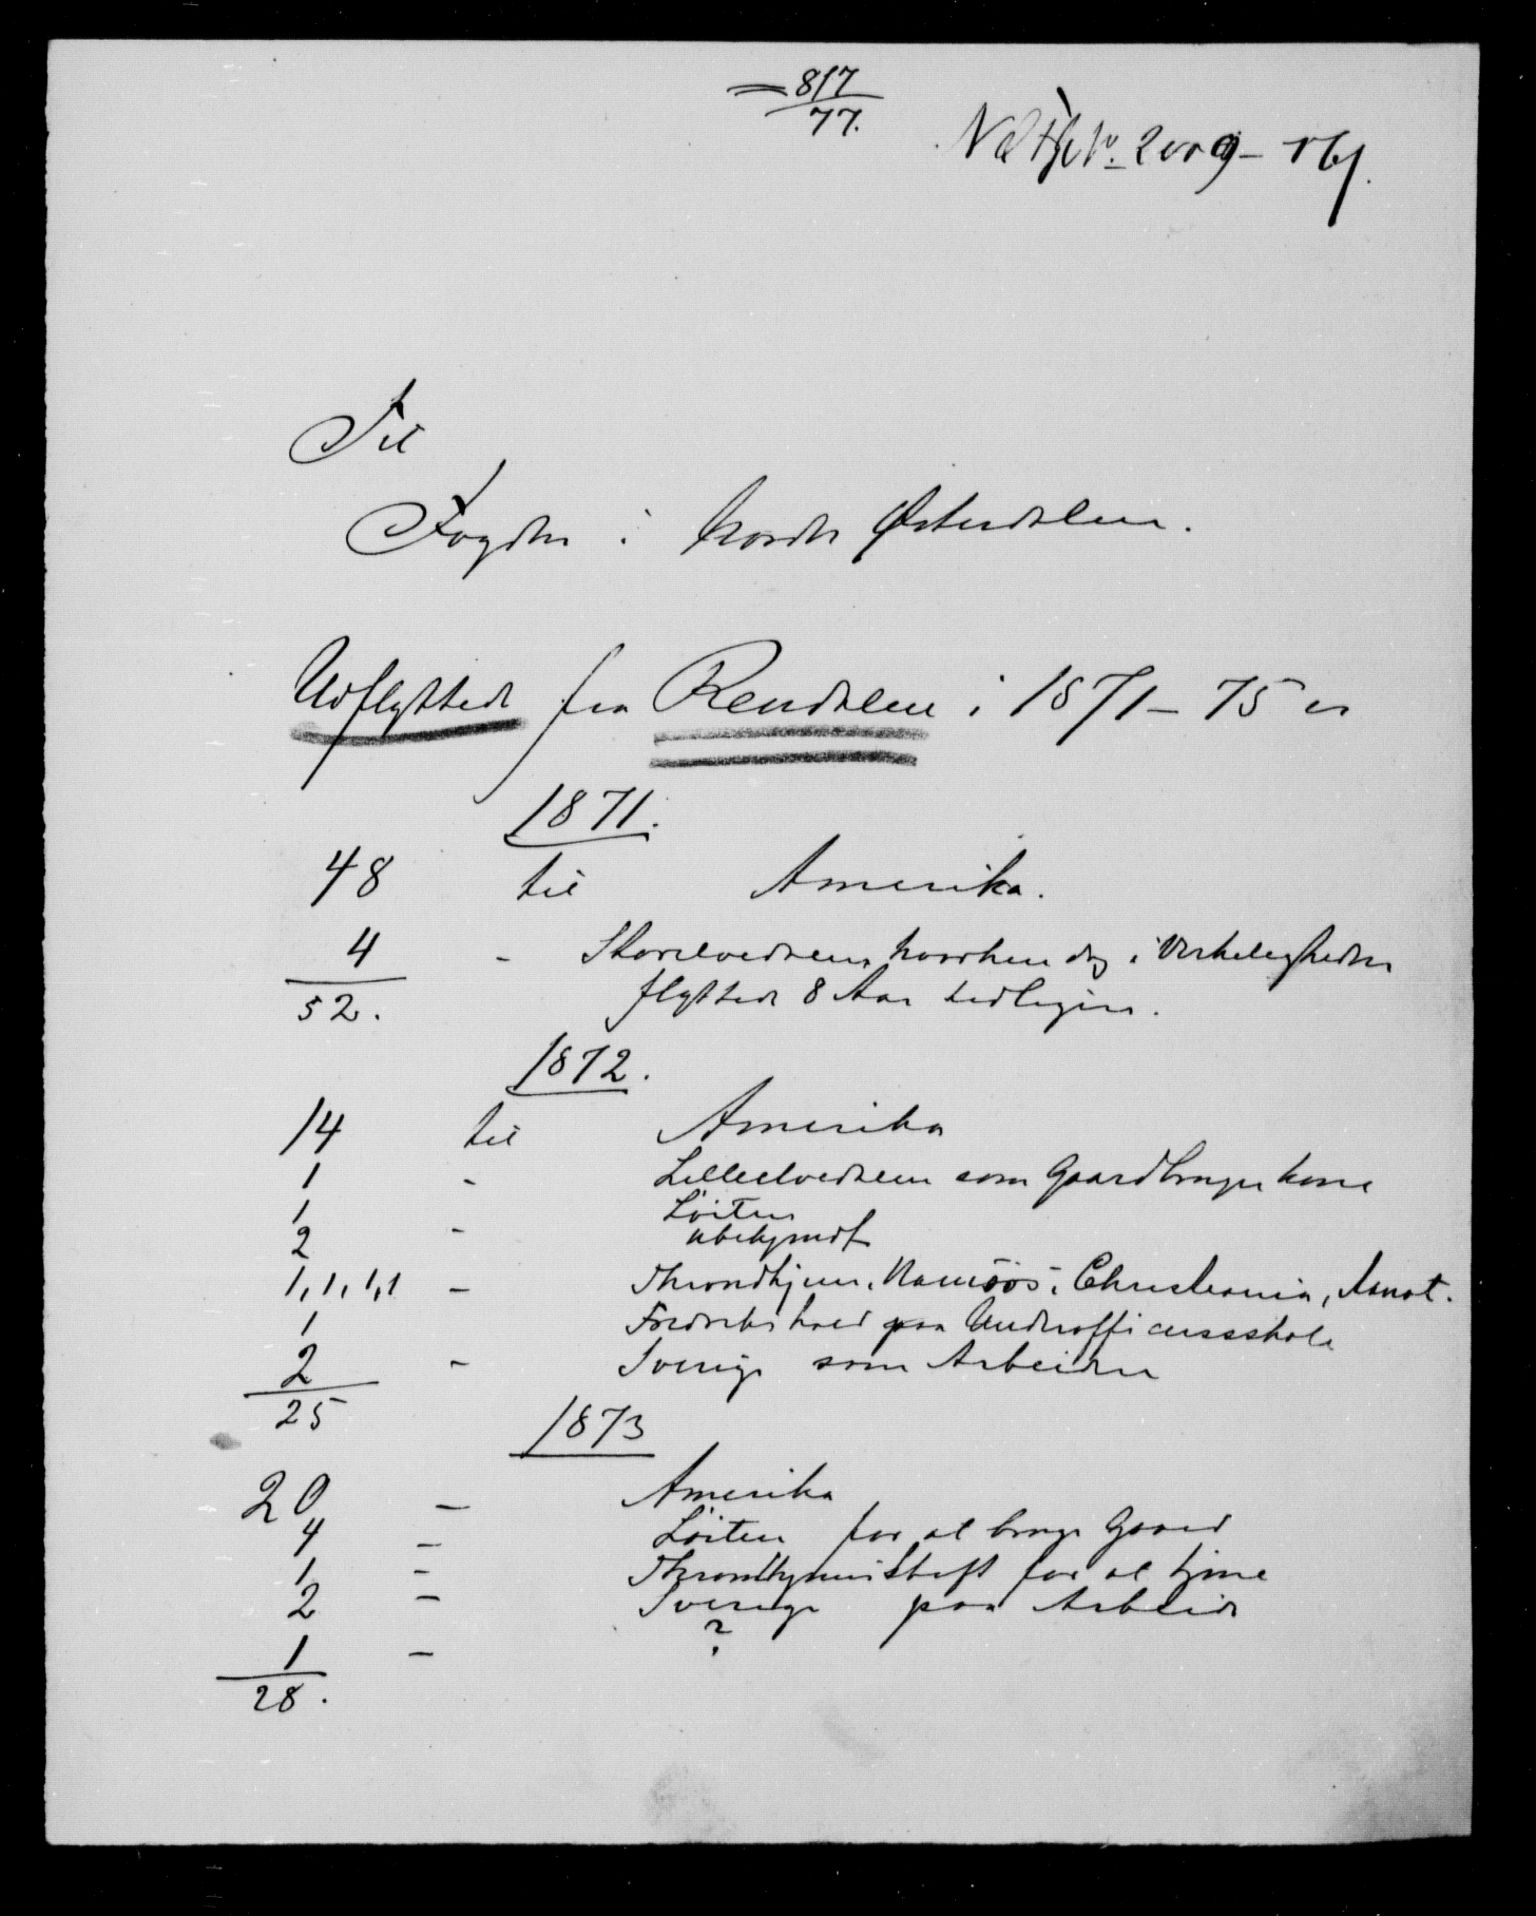 817
77.
Til
Fogden i Nordre Østerdalen.
Udflyttede fra Rendalen i 1871–75 er
1871.
48 til Amerika.
4 - Storelvedalen, hvorhen dog i Virkeligheden
52. flyttede 8 Aar tidligere.
1872.
14 til Amerika
1 - Lilleelvedalen som Gaardbruger kone
1 Löiten
2 - ubekjendt
1, 1, 1, 1 - Throndhjem, Namsos, Christiania, Aamot.
1 Fredrikshald paa Underofficersskole
2 - Sverige som Arbeidere
25
1873
20 - Amerika
4 - Löiten for at bruge Gaard
1 - Throndhjems Stift for at tjene
2 - Sverige paa Arbeide
1 - ?
28.